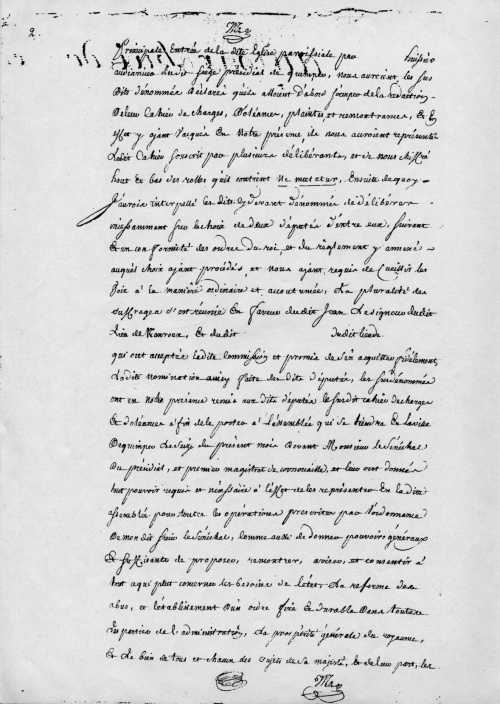 2
principale Entrée de la dite Eglise parroissiale par huissier
audiancier du dit siege presidial de quimper, nous auroient, les sus
Dits dénommés Declaré quils alloient d'abord s'occuper de la redaction
De leur Cahier de charges, Doléances, plaintes, et remontrances, & En
Effet y ajant vacqué En notre présence, ils nous auroient représenté
Ledit Cahier souscrit par plusieurs délibérants, et de nous chiffré
haut et bas des rolles qu'il contient Ne varietur, Ensuite de quoy
J'aurois interpellé les dits cy devant dénommés de délibérer
incessamment sur le choix de deux députés d'entre eux, suivant
& en conformité des ordres du roi, et du règlement y annexé
auquel choix ajant procédés, et nous ajant requis de Cueillir les
voix à la manière ordinaire et accoutumée, La pluralité des
suffrages s'est réunie En faveur du dit Jean Le signour du dit
Lieu de Kanroux, & du dit du dit lieu de
qui ont acceptés ladite Commission et promis de s'en acquitter fidèlement,
La dite nomination ainsy faite des dits députés, les susdénommés
ont en notre présence remis aux dits députés le susdit cahier de charges
& doléances afin de le porter à l'assemblée qui se tiendra En la ville
De quimper Le seize du présent mois Devant Monsieur le Sénéchal
Du présidial, et premier magistrat de cornouaille, et leur ont donnés
tout pouvoir requis et nécéssaire à l'effet de les représenter En la dite
assemblée pour toutes les opérations prescrites par l'ordonnance
De mon dit sieur le sénéchal, comme aussi de donner pouvoirs généraux
& suffisants de proposer, remontrer, aviser, et consentir à
tout ce qui peut concerner les besoins de l'état, La reforme des
abus, et l'établissement D'un ordre fixe & durable Dans toutes
les parties de l'administration, La prospérité générale du royaume,
& Le bien de tous et chacun des sujets de sa majesté, & de leur part, les